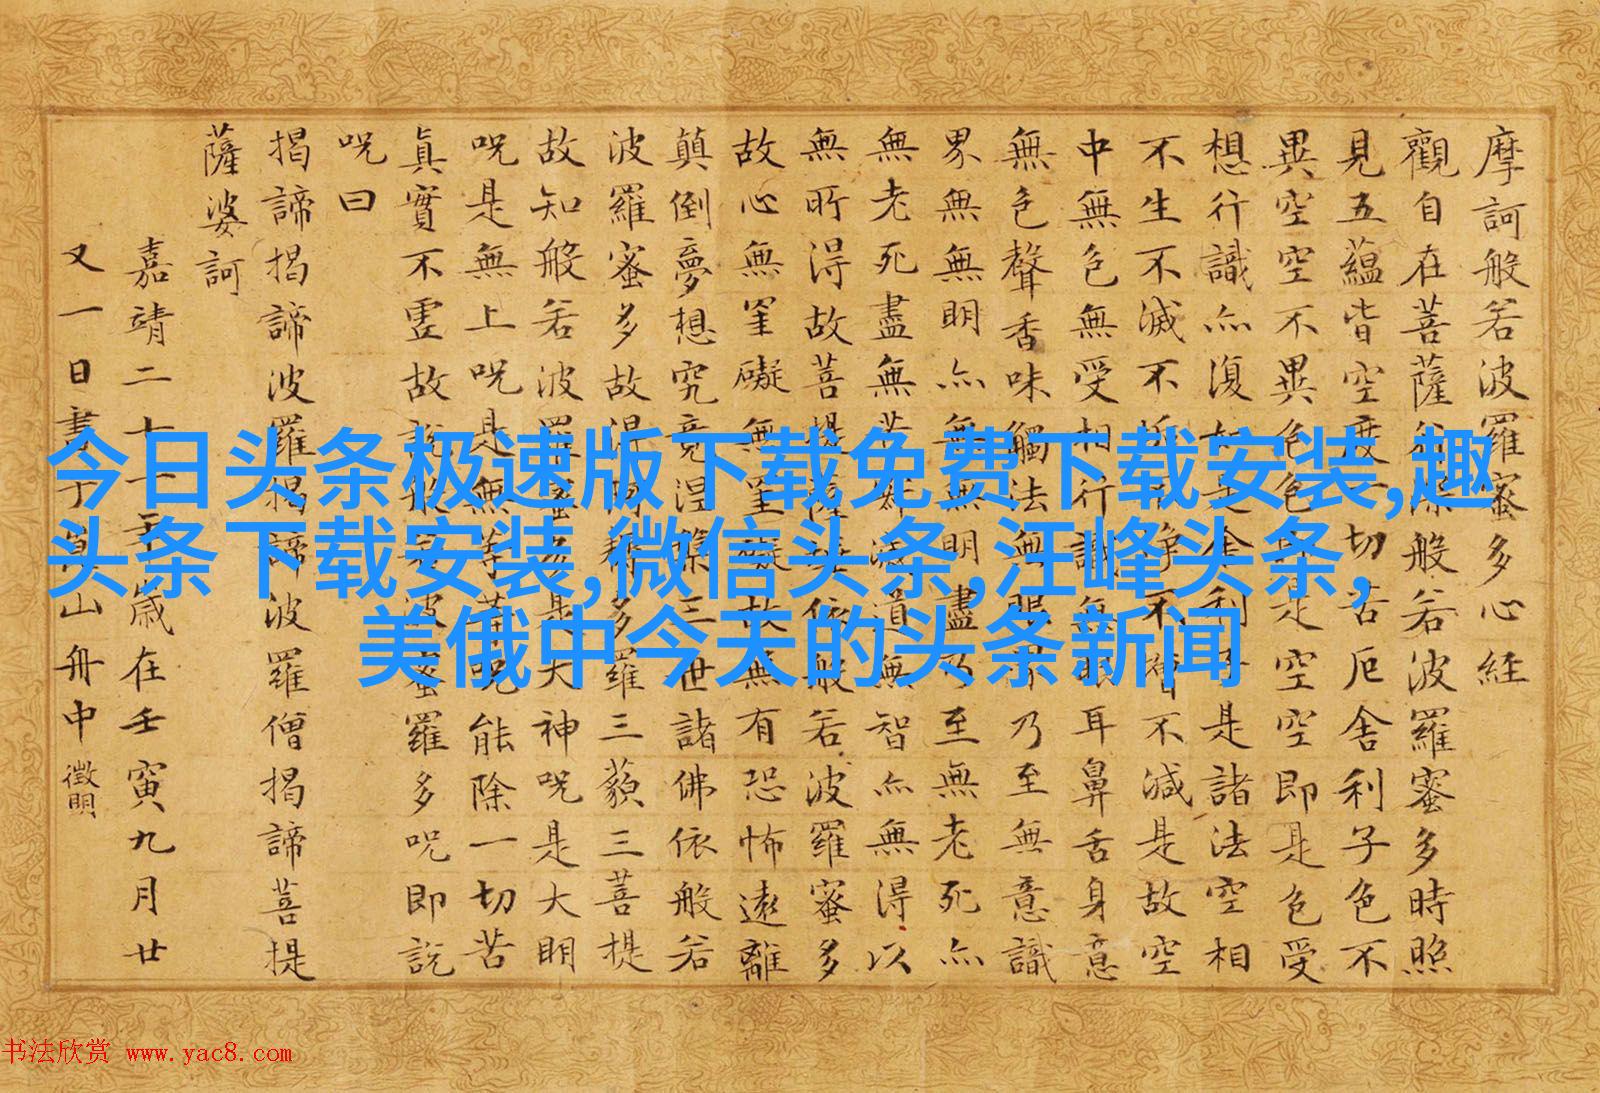 摩訶般若波羅蜜多心経
觀自在菩薩行深般若波羅蜜多時照
見五蘊皆空度一切苦厄舍利子色不
異空空不異色色即是空空即是色受
想行識亦復如是舍利子是諸法空相
不生不滅不垢不淨不增不減是故空
中無色無受相行識無眼耳鼻舌身意
無色聲香味觸法無眼界乃至無意識
界無無明亦無無明盡乃至無老死亦
無老死盡無苦滅道無智亦無得以
無所得故菩提薩依般若波羅蜜多
故心無罣礙無罣礙故無有恐怖遠離
顛倒夢想究竟涅槃三世諸佛依般若
波羅蜜多故得阿耨多羅三藐三菩提
故知般若波羅蜜多是大神呪是大明
呪是無上呪是無等等呪能除一切苦
真實不虛故說般若波羅蜜多呪即說
呪曰
揭諦揭諦波羅揭諦波羅僧揭諦菩提
薩婆訶
嘉靖二十一年歲在壬寅九月廿
又一日書于崑山舟中 徵明
今日头条极速版下载免费下载安装,趣
头条下载安装,微信头条,汪峰头条,
美俄中今天的头条新闻
书法欣赏 www.yac8.com